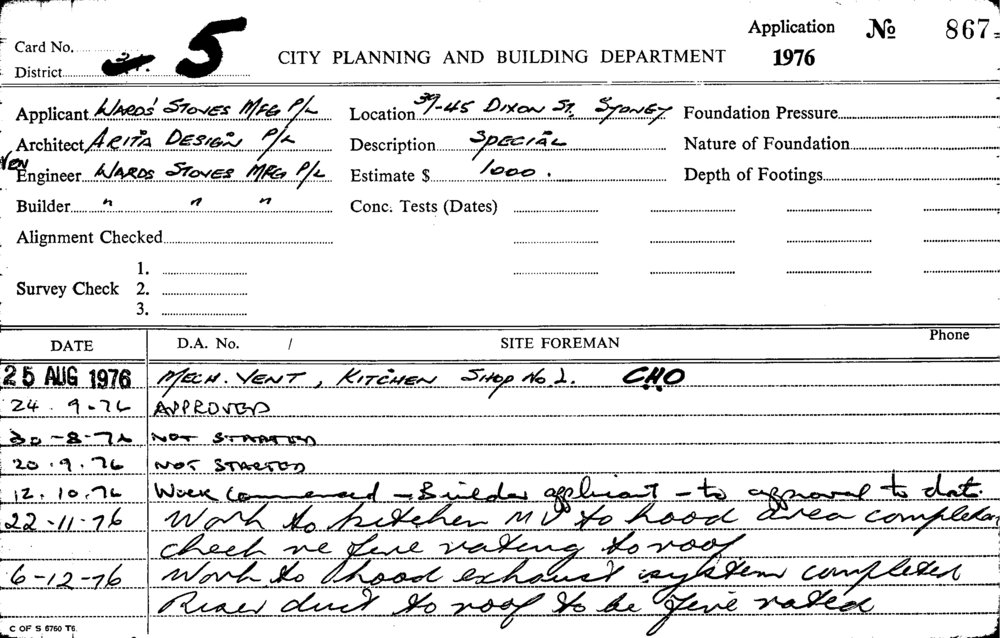 Application No 867
Card No.
5
CITY PLANNING AND BUILDING DEPARTMENT
1976
District
Applicant WARDS' STOVES MFG P/L
Location 39-45 DIXON ST, SYDNEY
Foundation Pressure
Architect ARITA DESIGN P/L
Description SPECIAL
Nature of Foundation
VEN
Engineer WARDS STOVES MFG P/L
Estimate $ 1000.
Depth of Footings
Builder " " "
Conc. Tests (Dates)
Alignment Checked
1.
Survey Check 2.
3.
DATE D.A. No. / SITE FOREMAN Phone
25 AUG 1976 MECH. VENT, KITCHEN SHOP No 2. C.H.O
24.9-76 APPROVED
30-8-76 NOT STARTED
20.9.76 NOT STARTED
12.10.76 Work Commenced - Builder applicant - to approval to date.
22-11-76 Work to kitchen MV to hood area completed
check re fire rating to roof
6-12-76 Work to hood exhaust system completed
Riser duct to roof to be fire rated
C OF S 6760 T6